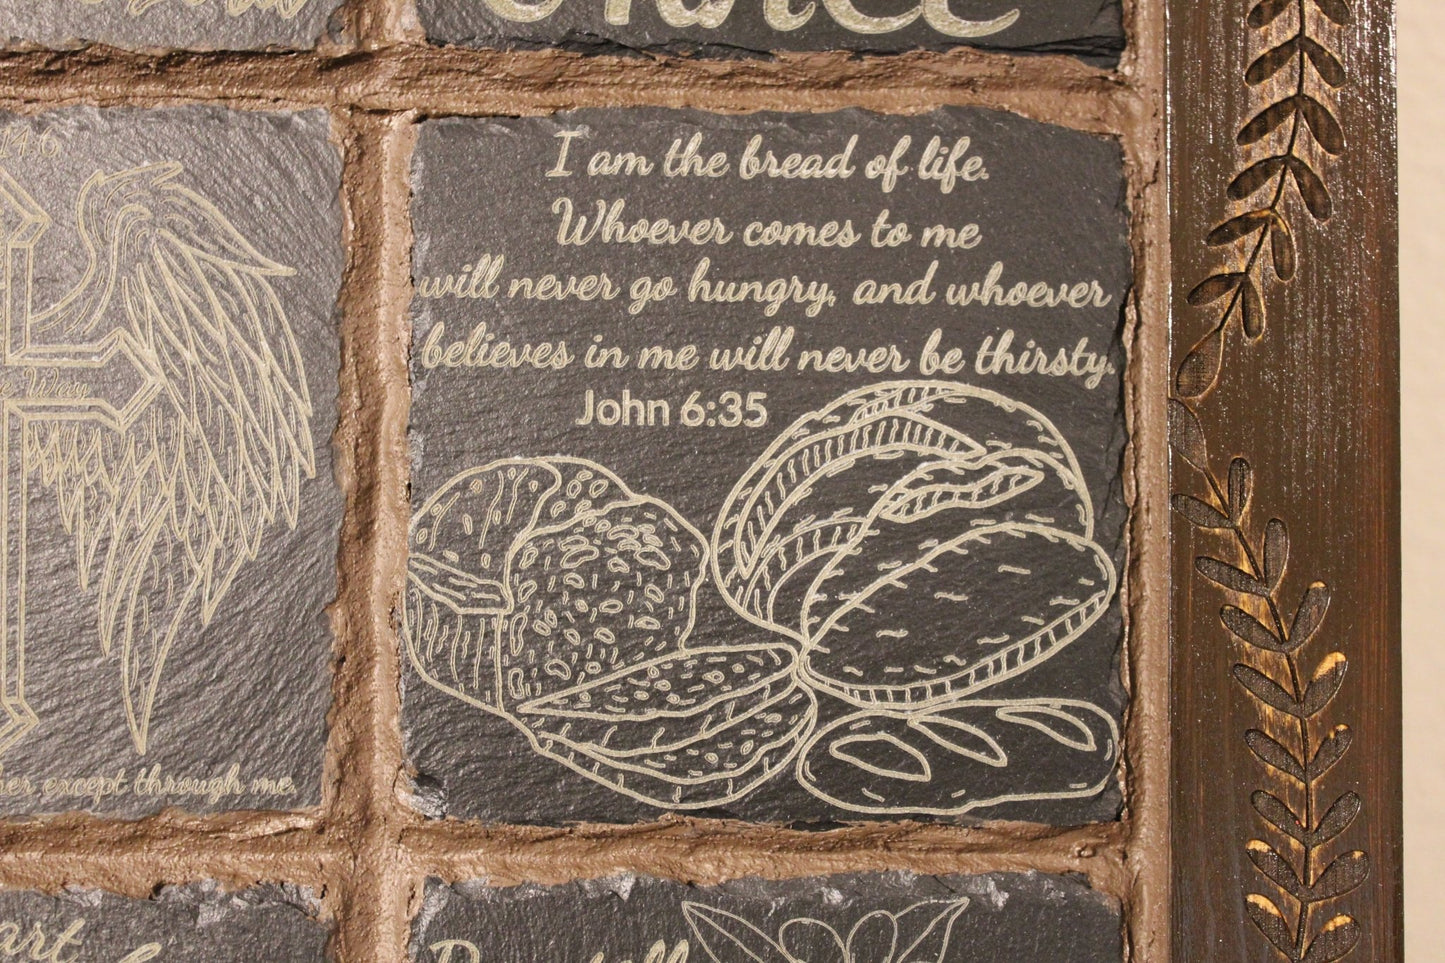 I am the bread of life.
Whoever comes to me
will never go hungry, and whoever
believes in me will never be thirsty.
John 6:35
14:6
Way
except through me.